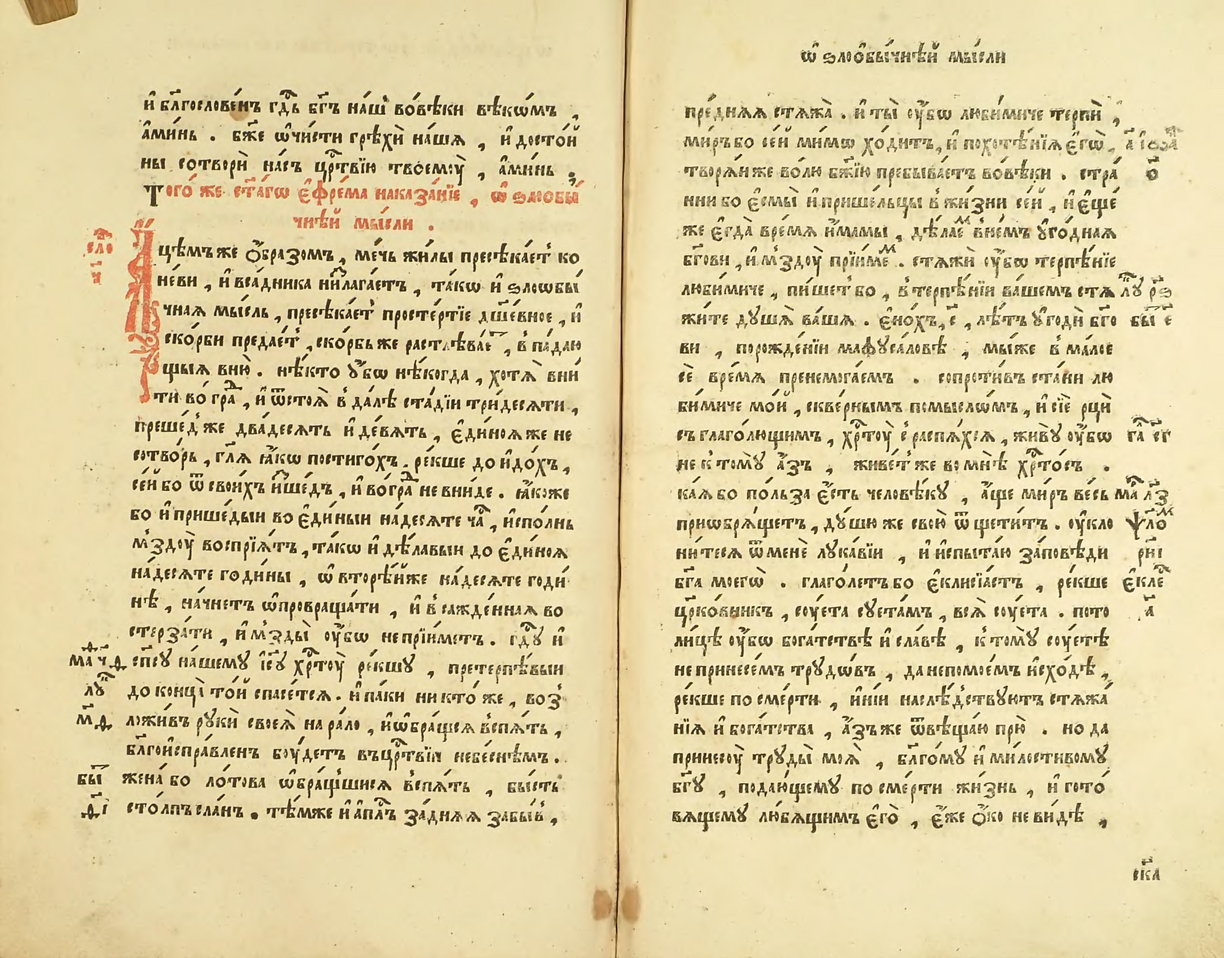 и҆ бл҃гослове́нъ гдⷭ҇ь бг҃ъ на́шъ во́вѣки вѣкѡмъ ,
а҆ми́нь . бж҃е ѡ҆чи́сти грѣхѝ на́шѧ , и҆ досто́й
ны сотворѝ на́съ црⷭ҇твїю твоемꙋ̀ , а҆ми́нь .
Того́ же ст҃а́гѡ є҆фре́ма наказа́нїе , ѡ҆ ѕлоѡбы́
чнѣй мы́сли .
сло
ч҃
А҆
цѣ́мъже ѻ҆́бразомъ , ме́чь жи́лы пресѣка́етъ ко
не́ви , и҆ вса́дника низлага́етъ , та́кѡ и҆ ѕлоѡбы́
чнаѧ мы́сль , пресѣка́етъ просте́ртїе дш҃е́вное , и҆
ско́рби предае́тъ , ско́рбь же растлѣва́етъ , в̾па́даю
щыѧ вню̀ . нѣ́кто ᲂу҆́бо нѣ́когда , хотѧ̀ вни́
ти во гра́дъ , и҆ ѿстоѧ̀ в̾да́лѣ ста́дїи три́десѧти ,
преше́дже два́десѧть и҆ де́вѧть , є҆ди́ноѧже не
сотво́рь , гл҃ѧ ꙗ҆́кѡ пости́гохъ . ре́кше до и҆до́хъ ,
се́й бо ѿ свои́хъ и҆ше́дъ , и҆ во гра́дъ не вни́де . ꙗ҆́коже
бо и҆ прише́дыи во є҆ди́ныи на́десѧте ча́съ , и҆спо́лнь
мздꙋ̀ воспрїѧ́тъ , та́кѡ и҆ дѣ́лавыи до є҆ди́ноѧ
на́десѧте годи́ны , ѡ҆ вторѣ́йже на́десѧте годи́
нѣ , на́чнетъ ѡ҆провраща́ти , и҆ в̾сажде́ннаѧ во
стерза́ти , и҆ мзды̀ ᲂу҆́бѡ не прїи́метъ . гдⷭ҇ꙋ и҆
ма ч҃д сп҃сꙋ на́шемꙋ і҆с҃ꙋ хрⷭ҇тꙋ̀ ре́кшꙋ , претерпѣ́выи
лꙋ до конца̀ то́й спасе́тсѧ . и҆ па́ки никто́ же , воз̾
м҃д ложи́въ рꙋ́ки своеѧ̀ на ра́ло , и҆ ѡ҆бра́щсѧ вспѧ́ть ,
бл҃гоисправленъ бꙋ́детъ въ црⷭ҇твїи небе́снѣмъ .
бы жена́ бо ло́това ѡ҆бра́щшисѧ вспѧ́ть , бы́сть
д҃і сто́лпъ сла́нъ . тѣ́мже и҆ а҆пⷭ҇лъ за́днѧѧ забы́въ ,
ѡ҆ ѕлоѡбы́чнѣй мы́сли
пре́днѧѧ стѧжа̀ . и҆ ты̀ ᲂу҆́бѡ люби́миче терпѝ ,
ми́ръ бо се́й ми́мѡ хо́дитъ , и҆ похотѣ́нїѧ є҆гѡ̀ ,
творѧ́и же во́лю бж҃їю пребыва́етъ во́вѣки . стра́
нни бо є҆смы̀ и҆ прише́льцы в̾жи́зни се́й , и҆ є҆ще́
же є҆гда̀ вре́мѧ и҆́мамы , дѣ́лаемъ в̾не́мъ ᲂу҆го́днаѧ
бг҃ови , и҆ мздꙋ̀ прїи́мемъ . стѧжѝ ᲂу҆́бѡ терпѣ́нїе
люби́миче , пи́шетъ бо , в̾терпѣ́нїи ва́шемъ стѧ
жи́те дꙋ́шѧ ва́шѧ . є҆но́хъ , є҃ , лѣ́тъ ᲂу҆годѝ бг҃о бы є҃
ви , порожде́нїи маѳꙋса́ловѣ , мы́же в̾ма́лое
сѐ вре́мѧ пренемога́емъ . сопроти́въ ста́ни лю
би́миче мо́й , скве́рнымъ помысло́мъ , и҆ сїѐ рцы̀
съ глаго́лющимъ , хрⷭ҇тꙋ̀ срaспѧ́хсѧ , живꙋ̀ ᲂу҆́бѡ
не к̾томꙋ̀ а҆́зъ , живе́тъ же во мнѣ̀ хрⷭ҇то́съ .
ка́ѧ бо по́льза є҆́сть человѣ́кꙋ , а҆́ще ми́ръ ве́сь
приѡбрѧ́щетъ , дꙋ́шю же свою̀ ѿщети́тъ . ᲂу҆кло
ни́тесѧ ѿ менѐ лꙋка́вїи , и҆ и҆спыта́ю за́повѣди
бг҃а моегѡ̀ . глаго́летъ бо є҆клисїа́стъ , ре́кше є҆кле
црⷪ҇ко́вникъ , сꙋета̀ сꙋета́мъ , всѧ̀ сꙋета̀ . пото а҃
ли́цѣ ᲂу҆́бѡ бога́тствѣ и҆ сла́вѣ , к̾то́мꙋ сꙋетѣ̀
не принесе́мъ трꙋдѡ́въ , да непомо́емъ и҆схо́дѣ ,
ре́кше по сме́рти , и҆ні́и наслѣ́дствꙋютъ стѧжа́
нїѧ и҆ бога́тства , а҆́зъже ѿвѣща́ю прю̀ . но да
принесꙋ̀ трꙋды̀ моѧ̀ , бл҃го́мꙋ и҆ ми́лостивомꙋ
бг҃ꙋ , подаю́щемꙋ по сме́рти жи́знь , и҆ гото́
вѧщемꙋ лю́бѧщимъ є҆го̀ , є҆́же ѻ҆́ко не ви́дѣ ,
ска